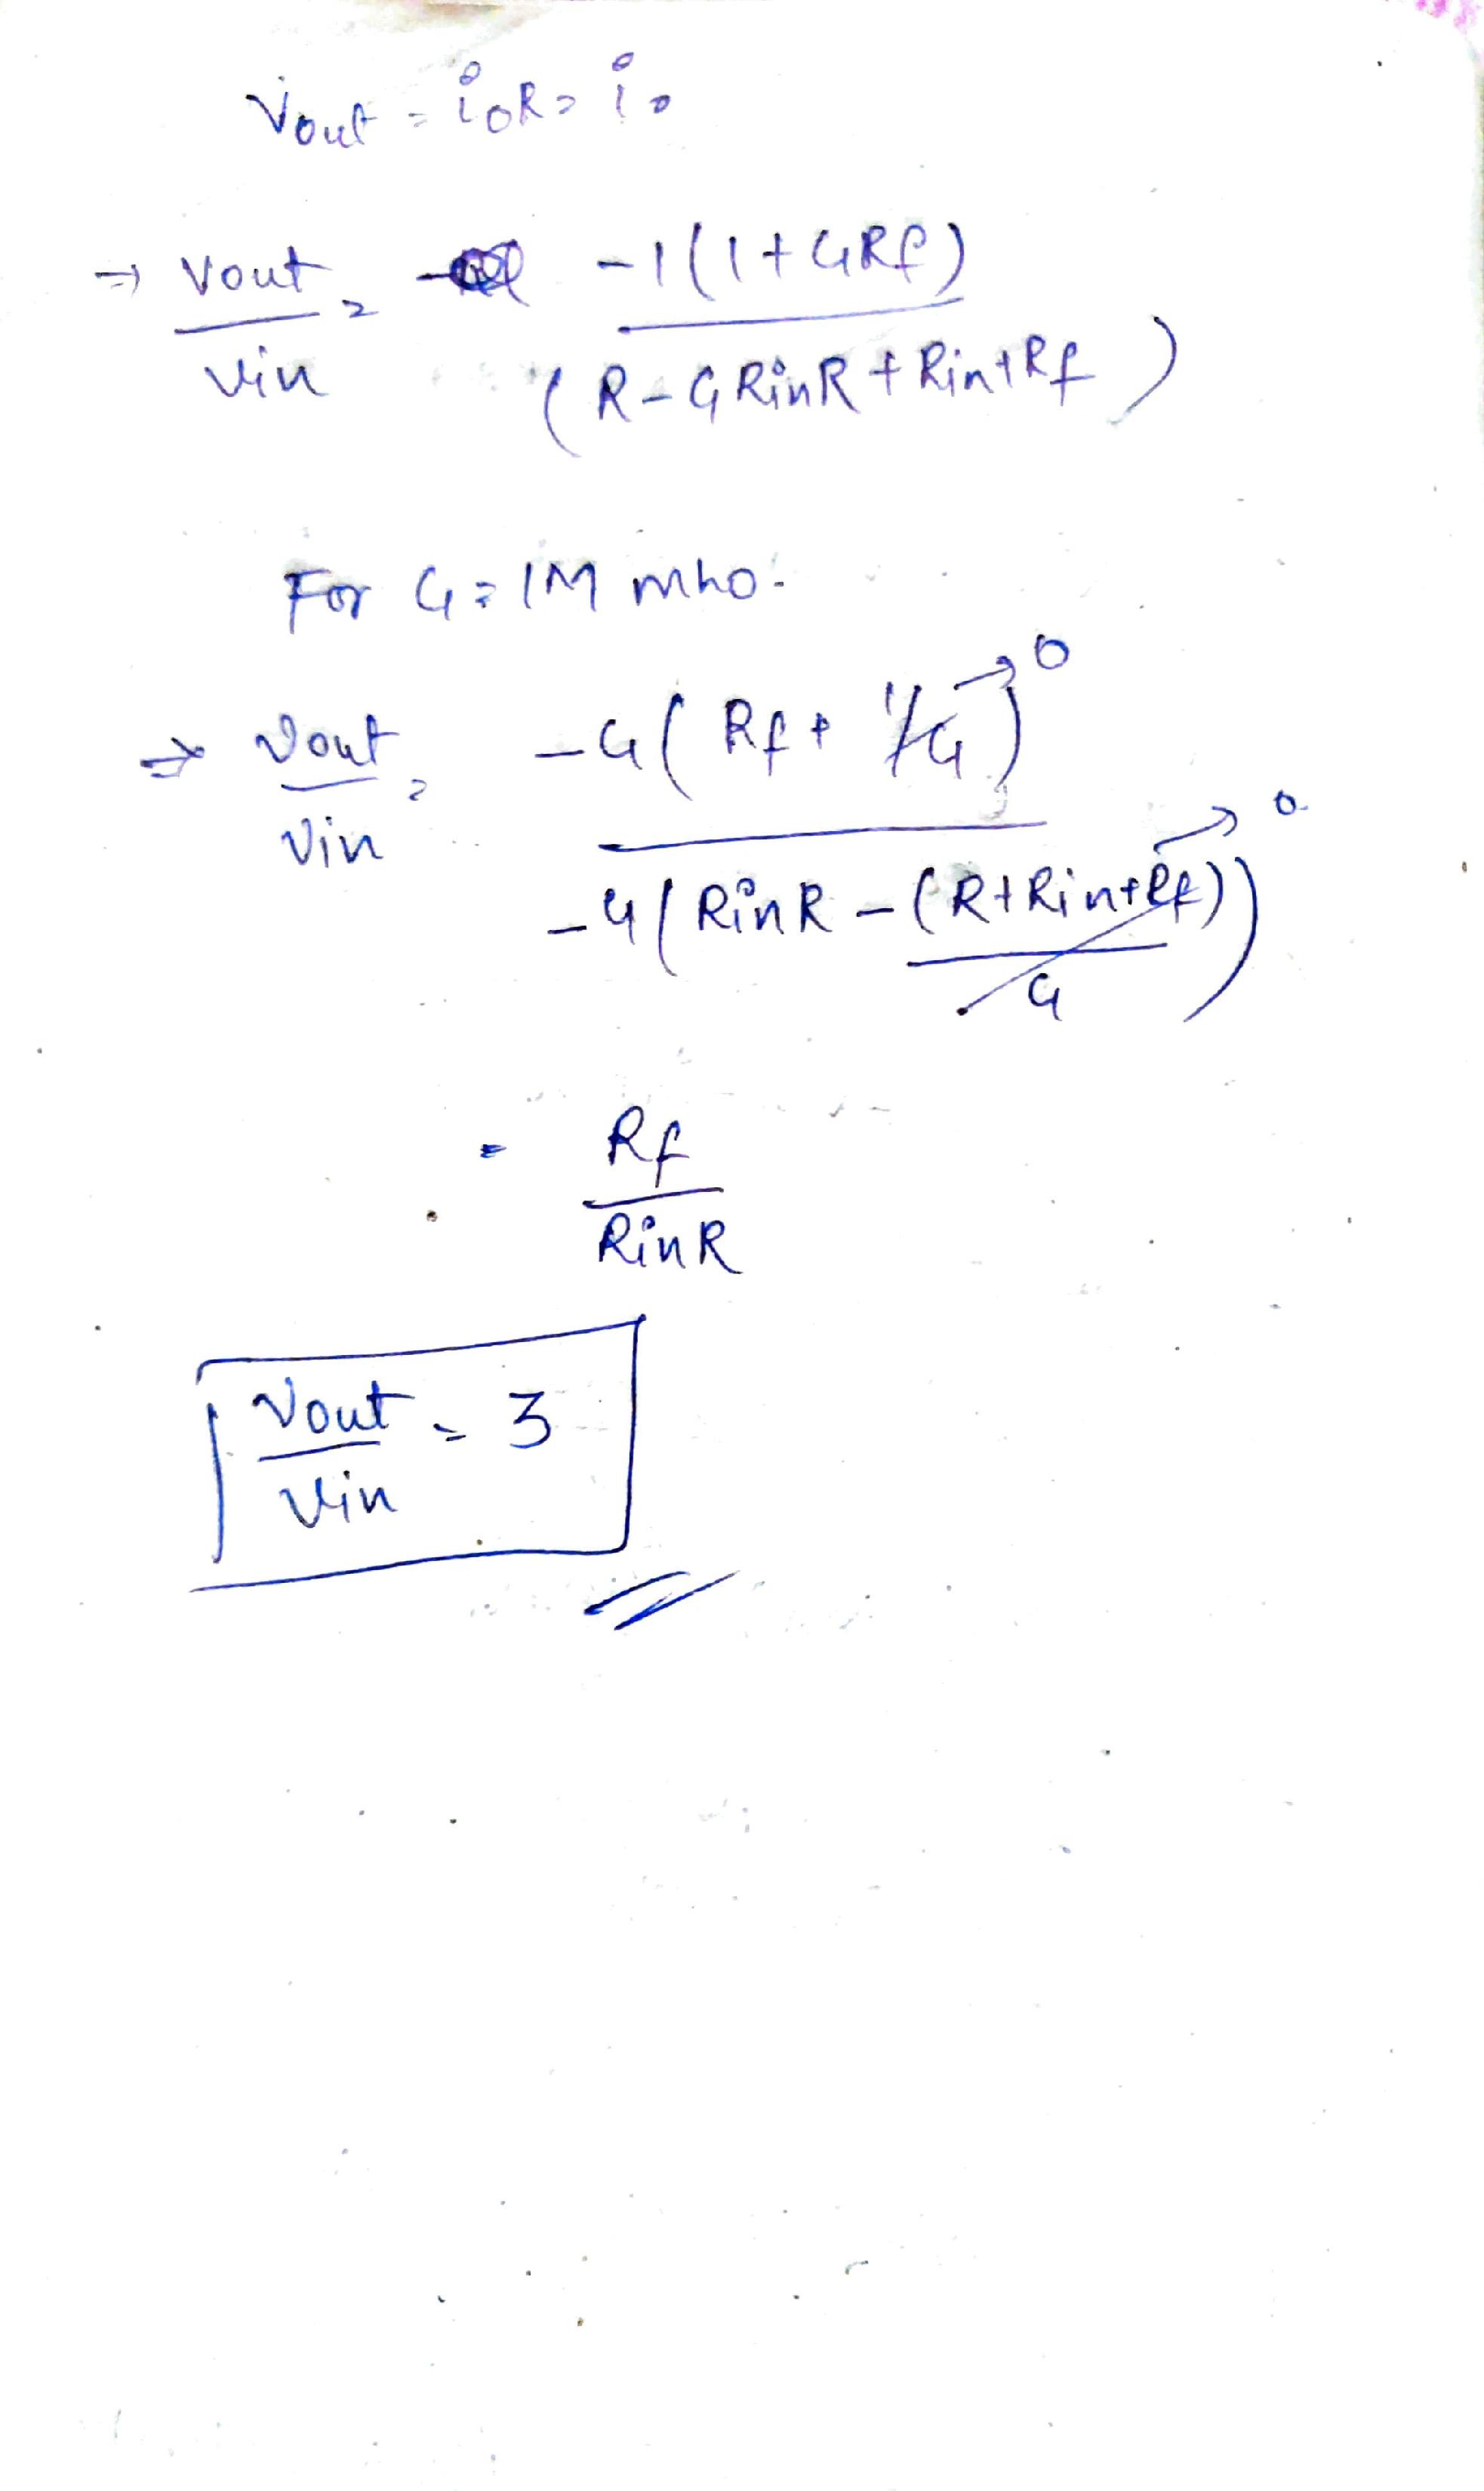 Vout = i₀R = i₀
⇒ Vout/Vin = -1(1+GRf) / (R-GRinR+Rin+Rf)
For G = 1M mho.
⇒ Vout/Vin = -G(Rf + 1/G)→0 / -G(RinR - (R+Rin+Rf)/G)→0
= Rf/RinR
Vout/Vin = 3